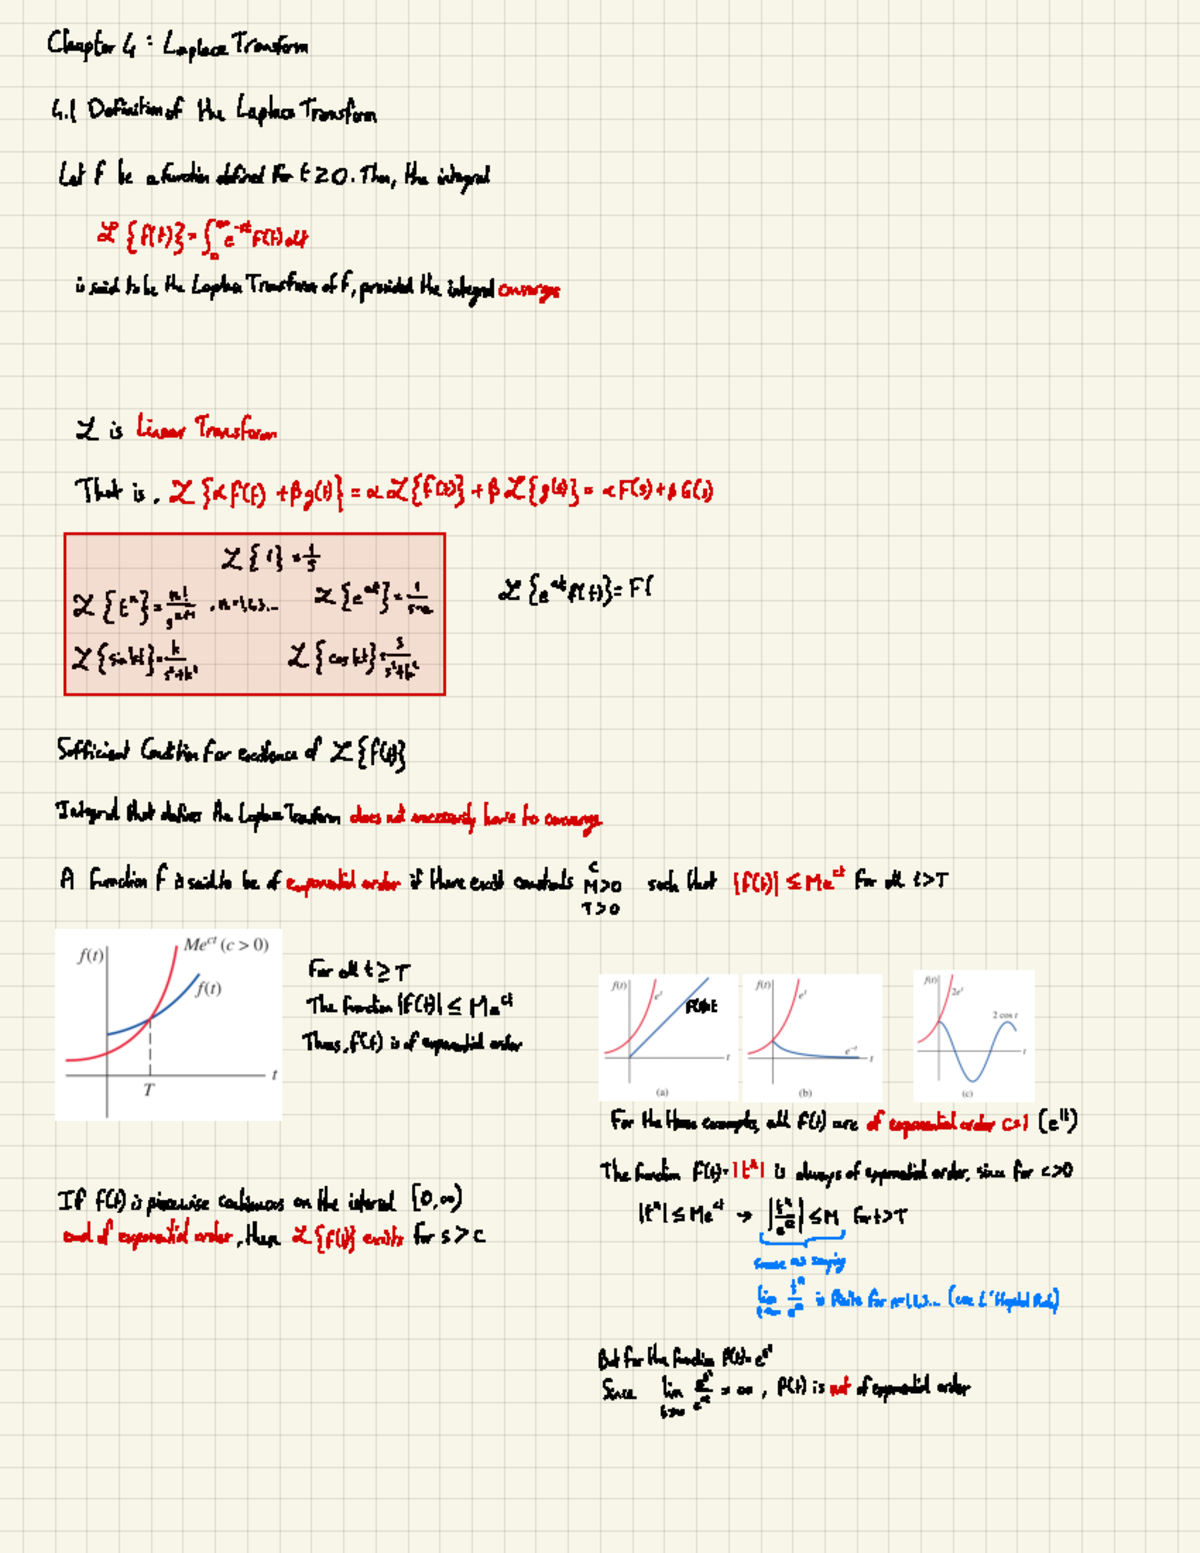 Chapter 4 : Laplace Transform
4.1 Definition of the Laplace Transform
Let f be a function defined for t ≥ 0. Then, the integral
ℒ{f(t)} = ∫₀^∞ e^-st f(t) dt
is said to be the Laplace Transform of f, provided the integral converges
ℒ is Linear Transform
That is, ℒ{αf(t) + βg(t)} = αℒ{f(t)} + βℒ{g(t)} = αF(s) + βG(s)
ℒ{1} = 1/s
ℒ{t^n} = n!/s^n+1 , n=1,2,3... ℒ{e^at} = 1/s-a
ℒ{e^at f(t)} = F(
ℒ{sin kt} = k/s²+k² ℒ{cos kt} = s/s²+k²
Sufficient Condition for existence of ℒ{f(t)}
Integral that defines the Laplace Transform does not necessarily have to converge
A function f is said to be of exponential order if there exist constants c M>0 T>0 such that |f(t)| ≤ Me^ct for all t>T
f(t) Me^ct (c > 0)
f(t)
T t
For all t ≥ T
The function |f(t)| ≤ Me^ct
Thus, f(t) is of exponential order
f(t) e^t t
(a)
f(t) e^t e^-t t
(b)
f(t) 2e^t 2 cos t t
(c)
For the three examples, all f(t) are of exponential order c=1 (e^1t)
The function f(t) = |t^n| is always of exponential order, since for c>0
|t^n| ≤ Me^ct → |t^n/e^ct| ≤ M for t>T
same as saying
lim t^n/e^ct is finite for n=1,2,3... (use L'Hopital Rule)
If f(t) is piecewise continuous on the interval [0,∞)
and of exponential order, then ℒ{f(t)} exists for s > c
But for the function f(t) = e^t²
Since lim t→∞ e^t²/e^ct = ∞ , f(t) is not of exponential order